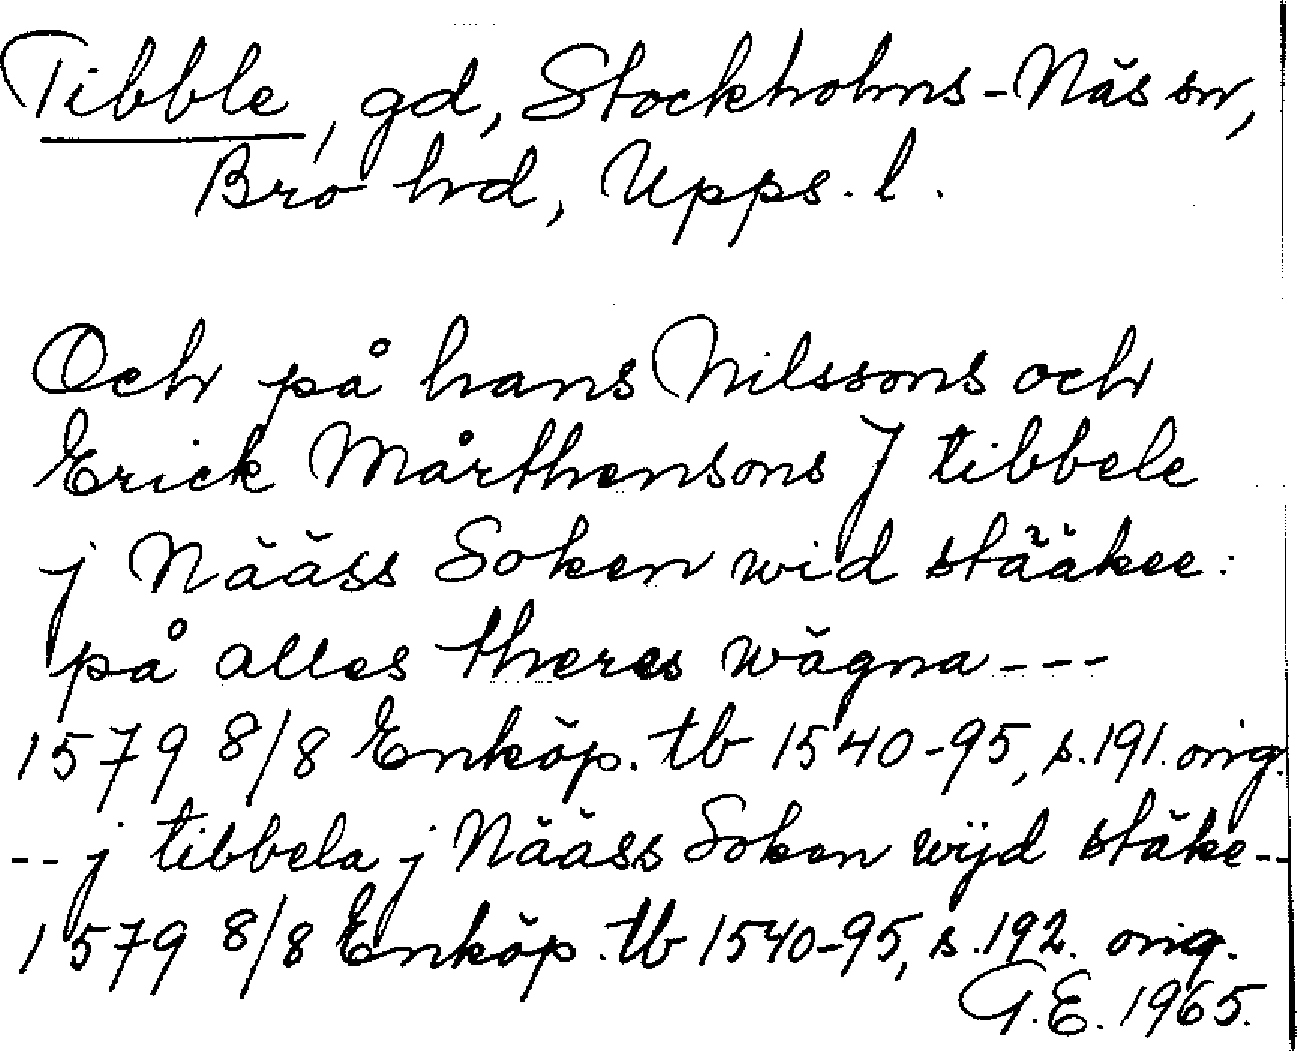 Tibble, gd, Stockholms-Näs sn,
Bro hd, Upps. l.
Och på hans Nilssons och
Erick Mårthensons J tibbele
j Nääss Soken wid stääkee:
på alles theres wägna---
1579 8/8 Enköp. tb 1540-95, s. 191. orig.
-- j tibbela j Nääss Soken wijd stäke--
1579 8/8 Enköp. tb 1540-95, s. 192. orig.
G.E. 1965.